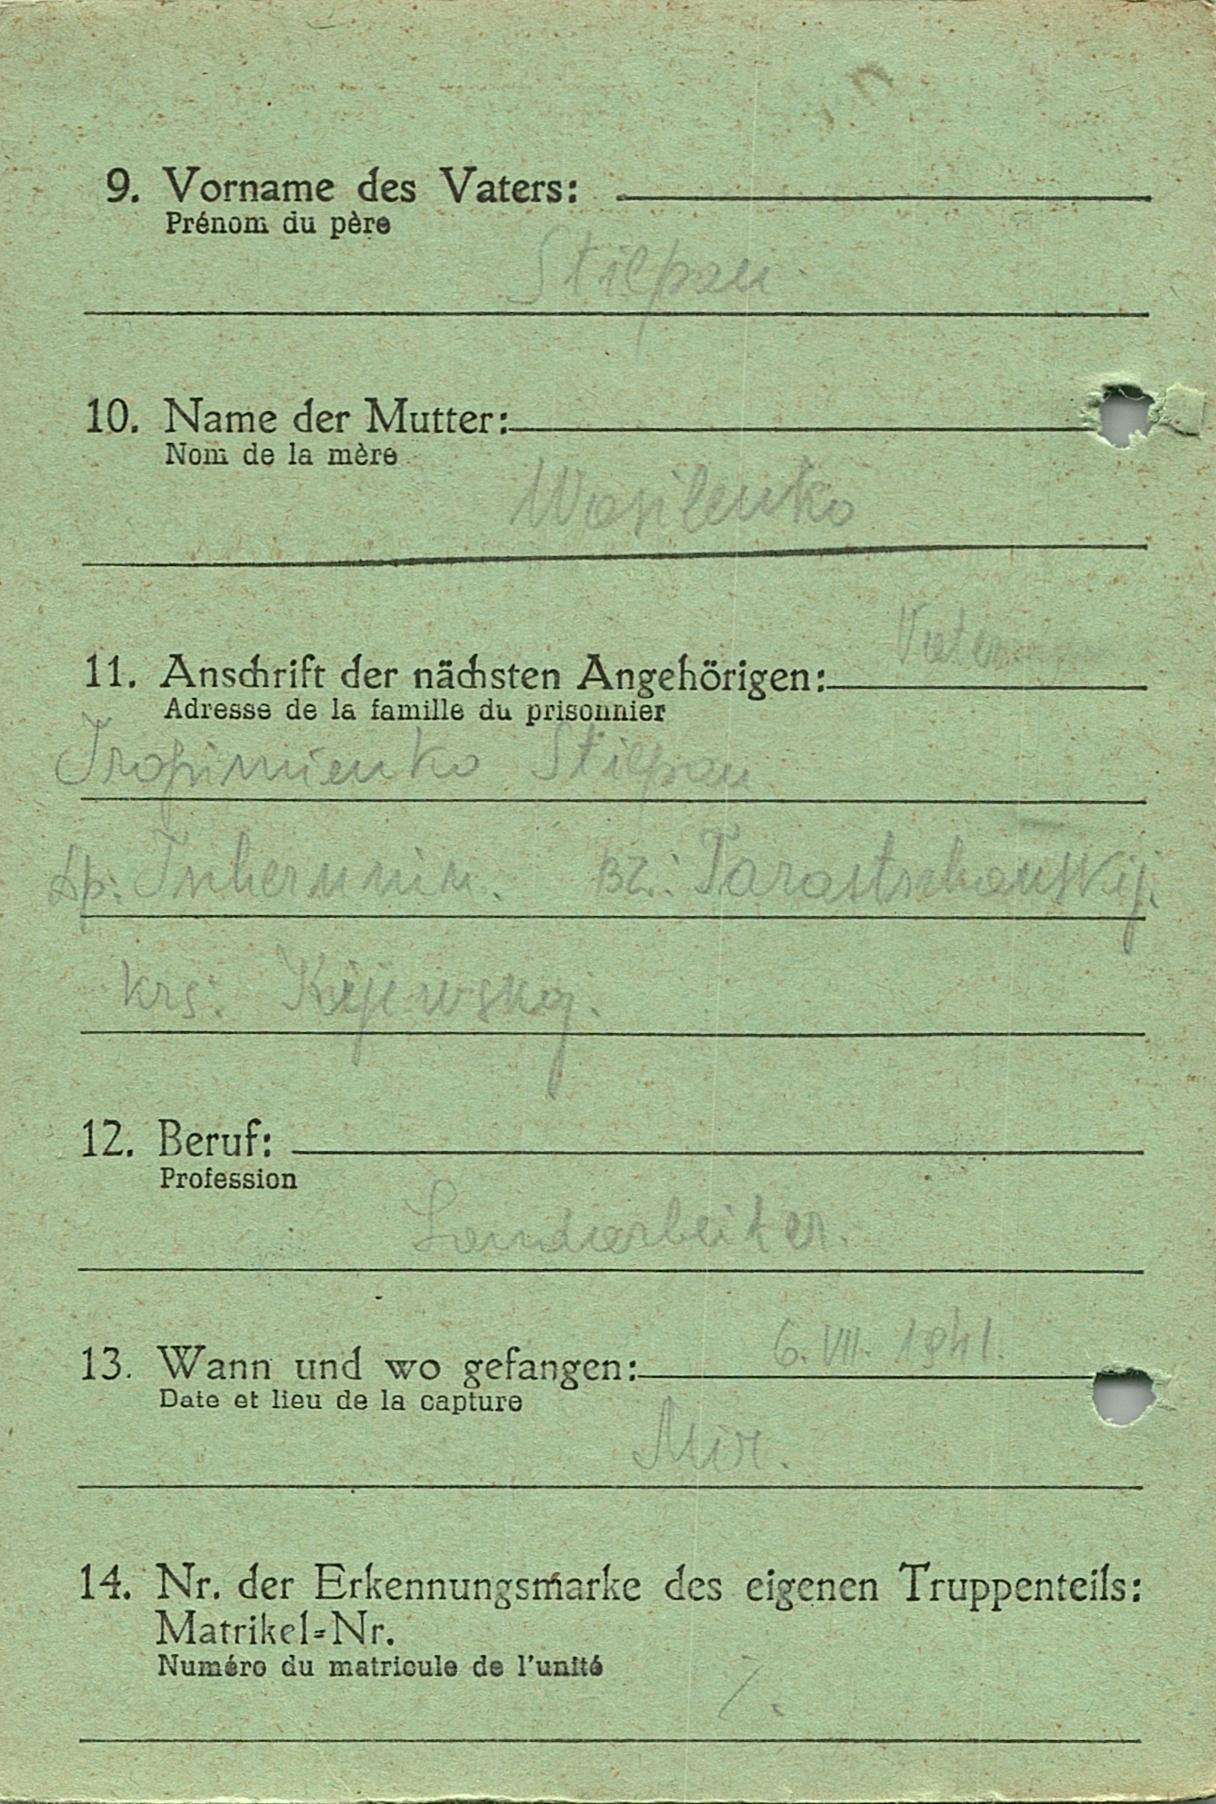 9. Vorname des Vaters:
Prénom du père
Stiepan
10. Name der Mutter:
Nom de la mère
Wasilenko
Vater
11. Anschrift der nächsten Angehörigen:
Adresse de la famille du prisonnier
Trofimienko Stiepan
Bz.: Taraschtschanskij.
krs: Kijewskoj.
12. Beruf:
Profession
Landarbeiter.
6. VII. 1941.
13. Wann und wo gefangen:
Date et lieu de la capture
Mir.
14. Nr. der Erkennungsmarke des eigenen Truppenteils:
Matrikel-Nr.
Numéro du matricule de l'unité